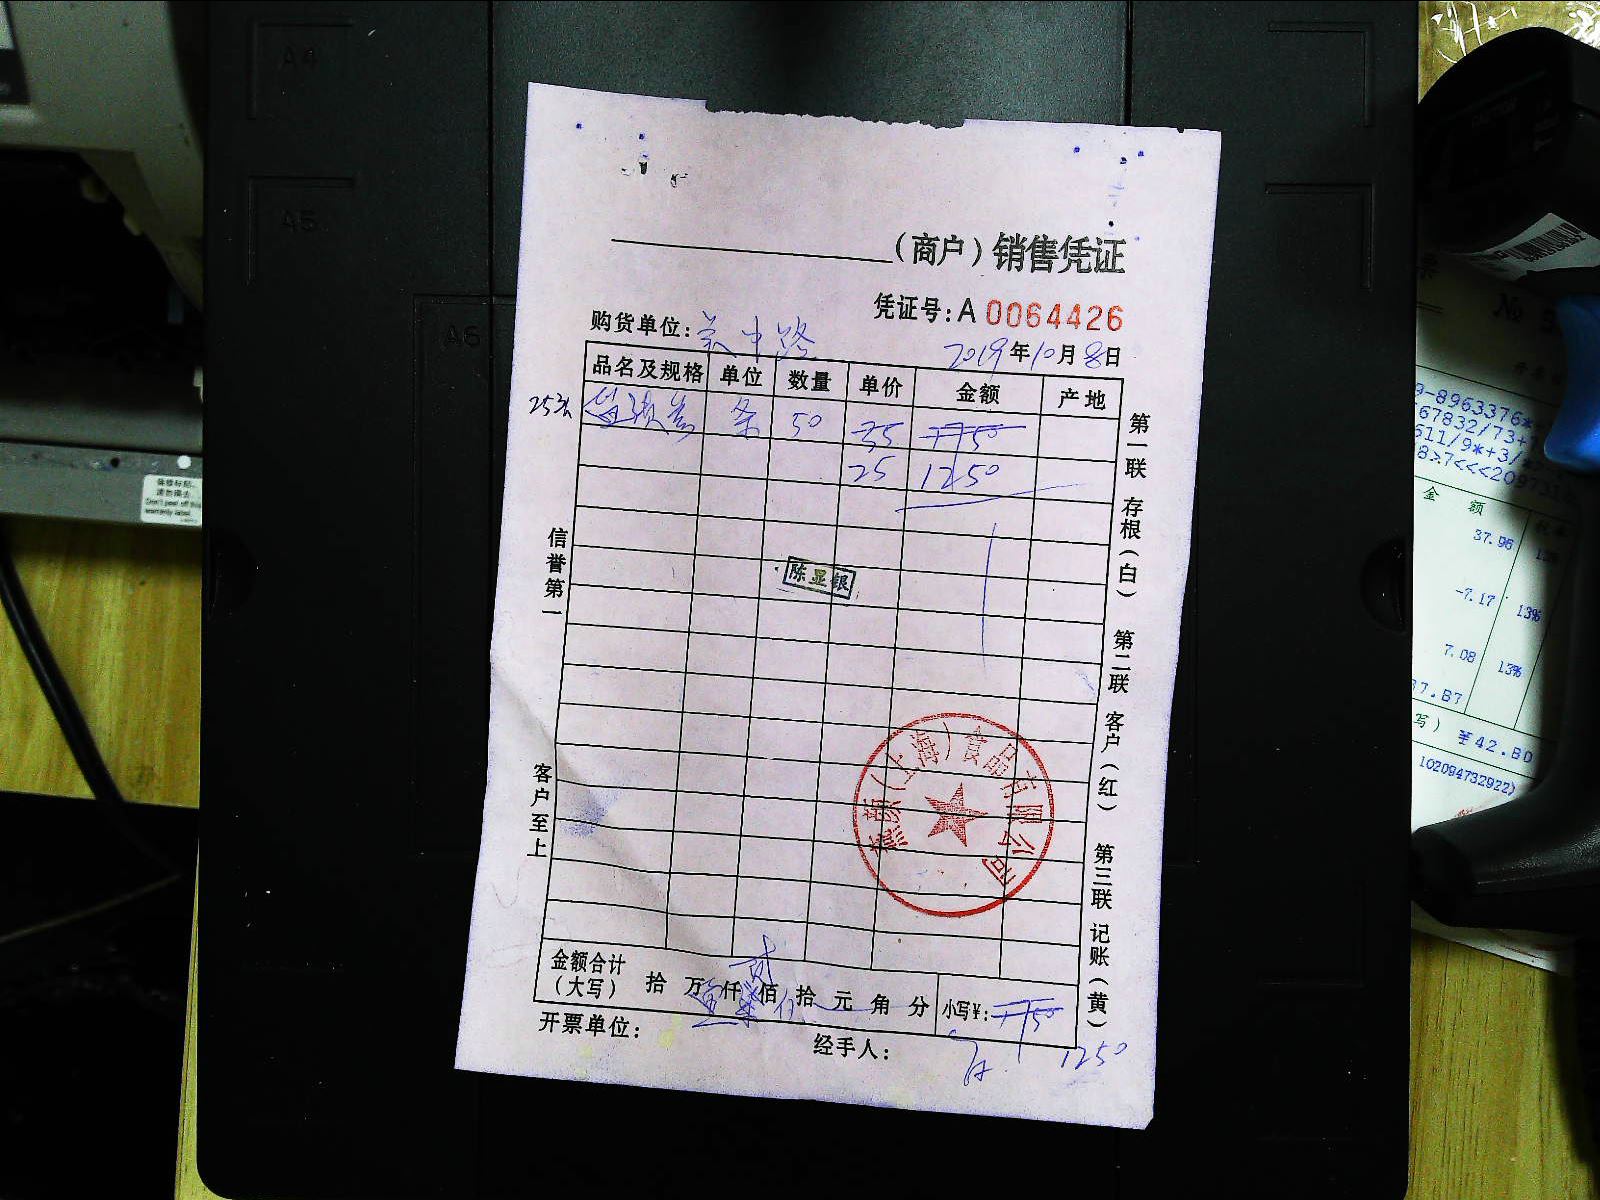 A4
A5
A6
（商户）销售凭证
凭证号：A 0064426
购货单位：吴中路
2019年10月8日
品名及规格 单位 数量 单价 金额 产地
条 50 35 1750
25 1250
陈显银
信誉第一
客户至上
第一联 存根（白） 第二联 客户（红） 第三联 记账（黄）
（上海）食品有限公司
金额合计（大写） 拾 万 仟 佰 拾 元 角 分 小写¥：1750
1250
开票单位：
经手人：
保修标贴，
请勿撕去
Don't peel off this
warranty label
金 额
37.96 13%
-7.17 13%
7.08 13%
¥42.80
102094732922)